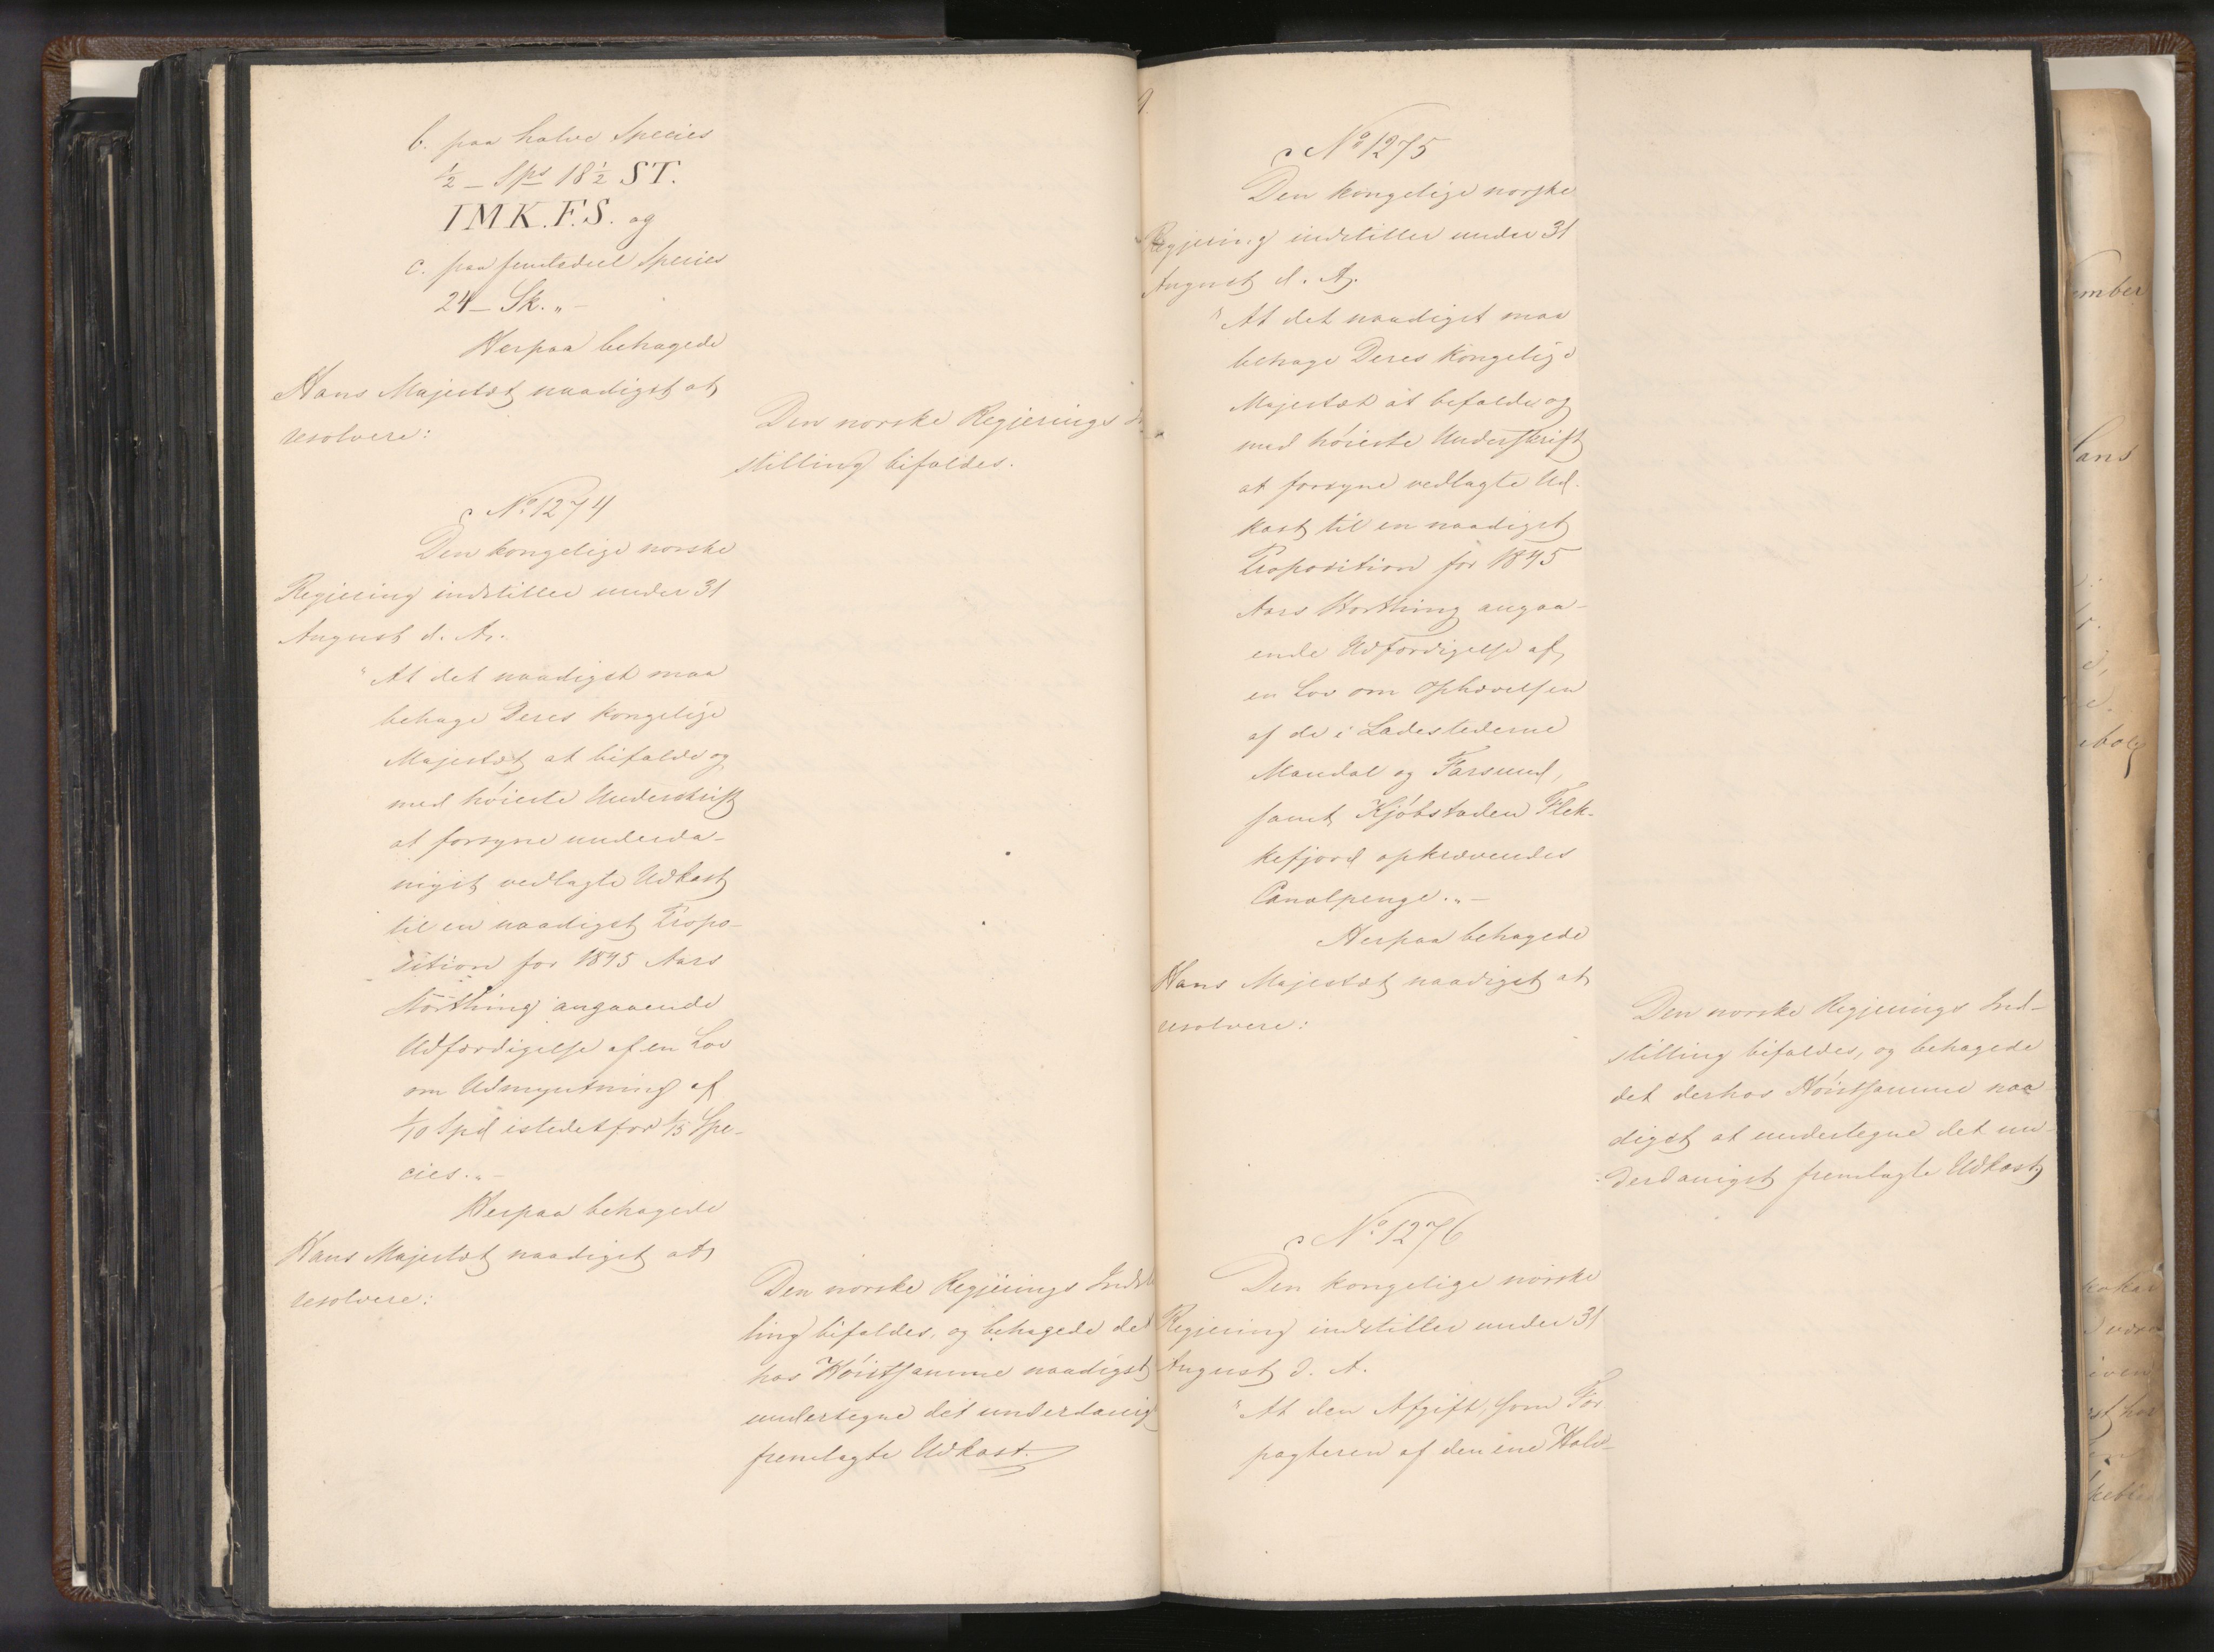 b. paa halve Species
½ – Sps 18½ ST.
IMK.F.S. og
c. paa femtedeel Species
24 – Sk. „ –
Herpaa behagede
Hans Majestæt naadigst at
resolvere:
Den norske Regjerings
stilling bifaldes.
No 1274
Den kongelige norske
Regjering indstiller under 31
August d. A.
"At det naadigst maa
behage Deres kongelige
Majestæt at bifalde og
med høieste Underskrift
at forsyne underda-
nigst vedlagte Udkast
til en naadigst Propo-
sition for 1845 Aars
Storthing angaaende
Udfærdigelse af en Lov
om Udmyntning af
1/10 Spd istedetfor 1/15 Spe-
cies. „ –
Herpaa behagede
Hans Majestæt naadigst at
resolvere:
Den norske Regjerings Indst
ling bifaldes, og behagede de
hos Høistsamme naadigst
undertegne det underdanig
fremlagte Udkast.
No 1275
Den kongelige norske
Regjering indstiller under 31
August d. A.
"At det naadigst maa
behage Deres Kongelige
Majestæt at befalde og
med høieste Underskrift
at forsyne vedlagte Ud-
kast til en naadigst
Proposition for 1845
Aars Storthing angaa-
ende Udfærdigelse af
en Lov om Ophævelsen
af de i Ladestederne
Mandal og Farsund,
samt Kjøbstaden Flek-
kefjord opkrævendes
Canalpenge. „ –
Herpaa behagede
Hans Majestæt naadigst at
resolvere:
Den norske Regjerings Ind-
stilling bifaldes, og behagede
det derhos Høistsamme naa
digst at undertegne det un-
derdanigst fremlagte Udkast
No 1276
Den kongelige norske
Regjering indstiller under 31
August d. A.
"At den Afgift, som For
pagteren af den ene Halv-
ember
ans